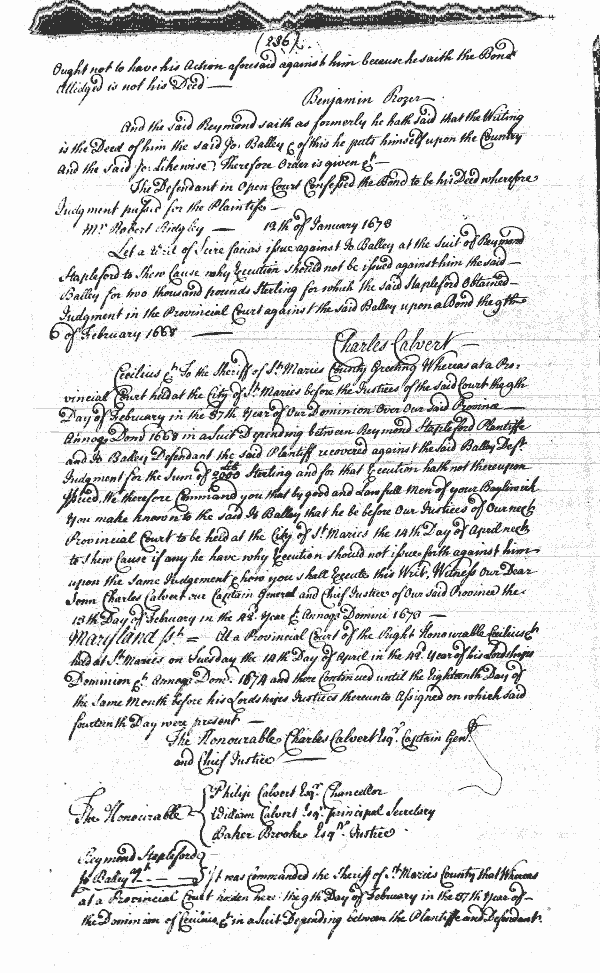 (236)
Ought not to have his Action aforesaid against him because he saith the Bond
alledged is not his Deed —
Benjamin Rozer
And the said Reymond saith as formerly he hath said that the Writing
is the Deed of him the said Jo: Balley & of this he puts himself upon the Country
And the said Jo: Likewise; Therefore Order is given &c —
The Defendant in Open Court Confessed the Bond to be his Deed wherefore
Judgment passed for the Plaintife —
Mr Robert Ridgley — 12th of January 1673
Let a Writ of Scire facias issue against Jo Balley at the Suit of Reymond
Stapleford to Shew Cause why Execution should not be issued against him the said
Balley for two thousand pounds Sterling for which the said Stapleford Obtained
Judgment in the Provincial Court against the said Balley upon a Bond the 9th
of February 1668 —
Charles Calvert —
Cecilius &c To the Sheriff of St Maries County Greeting Whereas at a Pro=
vincial Court held at the City of St Maries before the Justices of the said Court the 9th
Day of February in the 37th Year of Our Dominion Over Our said Province
Annoq Dom 1668 in a Suit Depending between Reymond Stapleford Plantiffe
and Jo Balley Defendant the said Plantiff recovered against the said Balley Deft
Judgment for the Sum of 2000 Sterling and for that Execution hath not thereupon
Issued. We therefore Command you that by good and Lawfull Men of your Baylywick
You make known to the said Jo Balley that he be before Our Justices of Our next
Provincial Court to be held at the City of St Maries the 14th Day of April next
to shew Cause if any he have why Execution should not issue forth against him
upon the Same Judgement & how you shall Execute this Writ, Witness Our Dear
Sonn Charles Calvert our Captain General and Chief Justice of Our said Province the
13th Day of February in the 42d Year & Annoq Domini 1673 —
Maryland ss = At a Provincial Court of the Right Honourable Cecilius &c
held at St Maries on Tuesday the 14th Day of April in the 42d Year of his Lordships
Dominion &c Annoq Dom: 1674 and there Continued until the Eighteenth Day of
the Same Month before his Lordships Justices thereunto Assigned on which said
fourteenth Day were present —
The Honourable Charles Calvert Esqr Captain Genl
and Chief Justice —
The Honourable
Philip Calvert Esqr Chancellor
William Calvert Esqr principal Secretary
Baker Brooke Esqr Justice
Reymond Stapleford
Jo Balley
It was Commanded the Sheriff of St Maries County that Whereas
at a Provincial Court holden here the 9th Day of February in the 37th Year of
the Dominion of Cecilius &c in a Suit Depending between the Plantiffe and Defendant